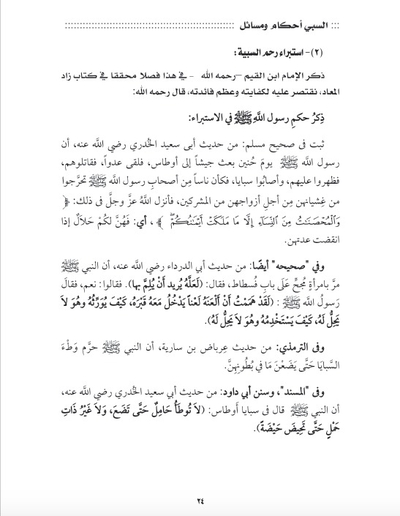 ::: السبي أحكام ومسائل ::::::::::::::::::::::::::::::::::::::::::
(٢)- استبراء رحم السبية:
ذكر الإمام ابن القيم –رحمه الله – في هذا فصلا محققا في كتاب زاد
المعاد، نقتصر عليه لكفايته وعظم فائدته، قال رحمه الله:
ذِكرُ حكمِ رسول اللَّهِ ﷺ في الاستبراء:
ثبت فى صحيح مسلم: من حديث أبى سعيد الخُدري رضي اللَّه عنه، أن
رسول اللَّه ﷺ يومَ حُنين بعث جيشاً إلى أوطاس، فلقى عدواً، فقاتلوهم،
فظهروا عليهم، وأصابُوا سبايا، فكأن ناساً مِن أصحابِ رسول اللَّه ﷺ تحرَّجوا
من غِشيانهن مِن أجلِ أزواجهن من المشركين، فأنزل اللَّهُ عزَّ وجلَّ في ذلك: ﴿
وَالْمُحْصَنَتُ مِنَ النِّسَاءِ إِلَّا مَا مَلَكَتْ أَيْمَنُكُمْ ﴾، أي: فهُنَّ لكُمْ حَلاَلٌ إذا
انقضت عدتهن.
وفي "صحيحه" أيضًا: من حديث أبي الدرداء رضي اللَّه عنه، أن النبي ﷺ
مرَّ بامرأةٍ مُجِحٍّ عَلَى بابِ فُسطاط، فقال: (لَعَلَّهُ يُريد أَنْ يُلِمَّ بها). فقالوا: نعم، فقال
رَسولُ اللَّه ﷺ: (لَقَدْ هَمَمْتُ أَنْ أَلْعَنَهُ لَعْناً يَدْخُلُ مَعَهُ قَبْرَهُ، كَيْفَ يُوَرِّثُهُ وهُوَ لاَ
يَحِلُّ لَهُ، كَيْفَ يَسْتَخْدِمُهُ وهُوَ لاَ يَحِلُّ لَهُ).
وفى الترمذي: من حديث عِرباض بن سارية، أن النبي ﷺ حرَّم وَطْءَ
السَّبايَا حَتَّى يَضَعْنَ مَا في بُطُونِهِنَّ.
وفى "المسند"، وسنن أبي داود: من حديث أبي سعيد الخُدري رضي اللَّه عنه،
أن النبي ﷺ قال في سبايا أَوطاس: (لاَ تُوطَأُ حَامِلٌ حَتَّى تَضَعَ، وَلاَ غَيْرُ ذَاتِ
حَمْلٍ حَتَّى تَحِيضَ حَيْضَةً).
٢٤